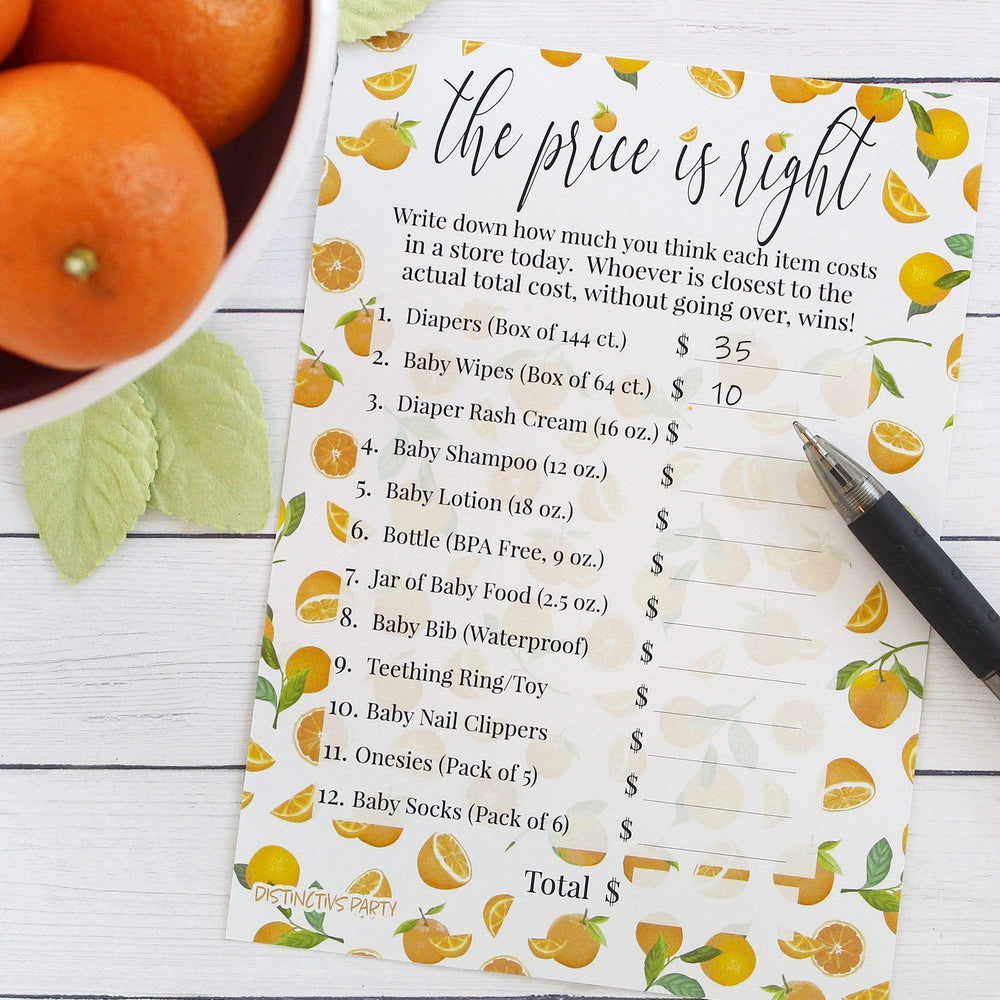 the price is right
Write down how much you think each item costs
in a store today. Whoever is closest to the
actual total cost, without going over, wins!
1. Diapers (Box of 144 ct.) $ 35
2. Baby Wipes (Box of 64 ct.) $ 10
3. Diaper Rash Cream (16 oz.) $
4. Baby Shampoo (12 oz.) $
5. Baby Lotion (18 oz.) $
6. Bottle (BPA Free, 9 oz.) $
7. Jar of Baby Food (2.5 oz.) $
8. Baby Bib (Waterproof) $
9. Teething Ring/Toy $
10. Baby Nail Clippers $
11. Onesies (Pack of 5) $
12. Baby Socks (Pack of 6) $
Total $
DISTINCTIVS PARTY